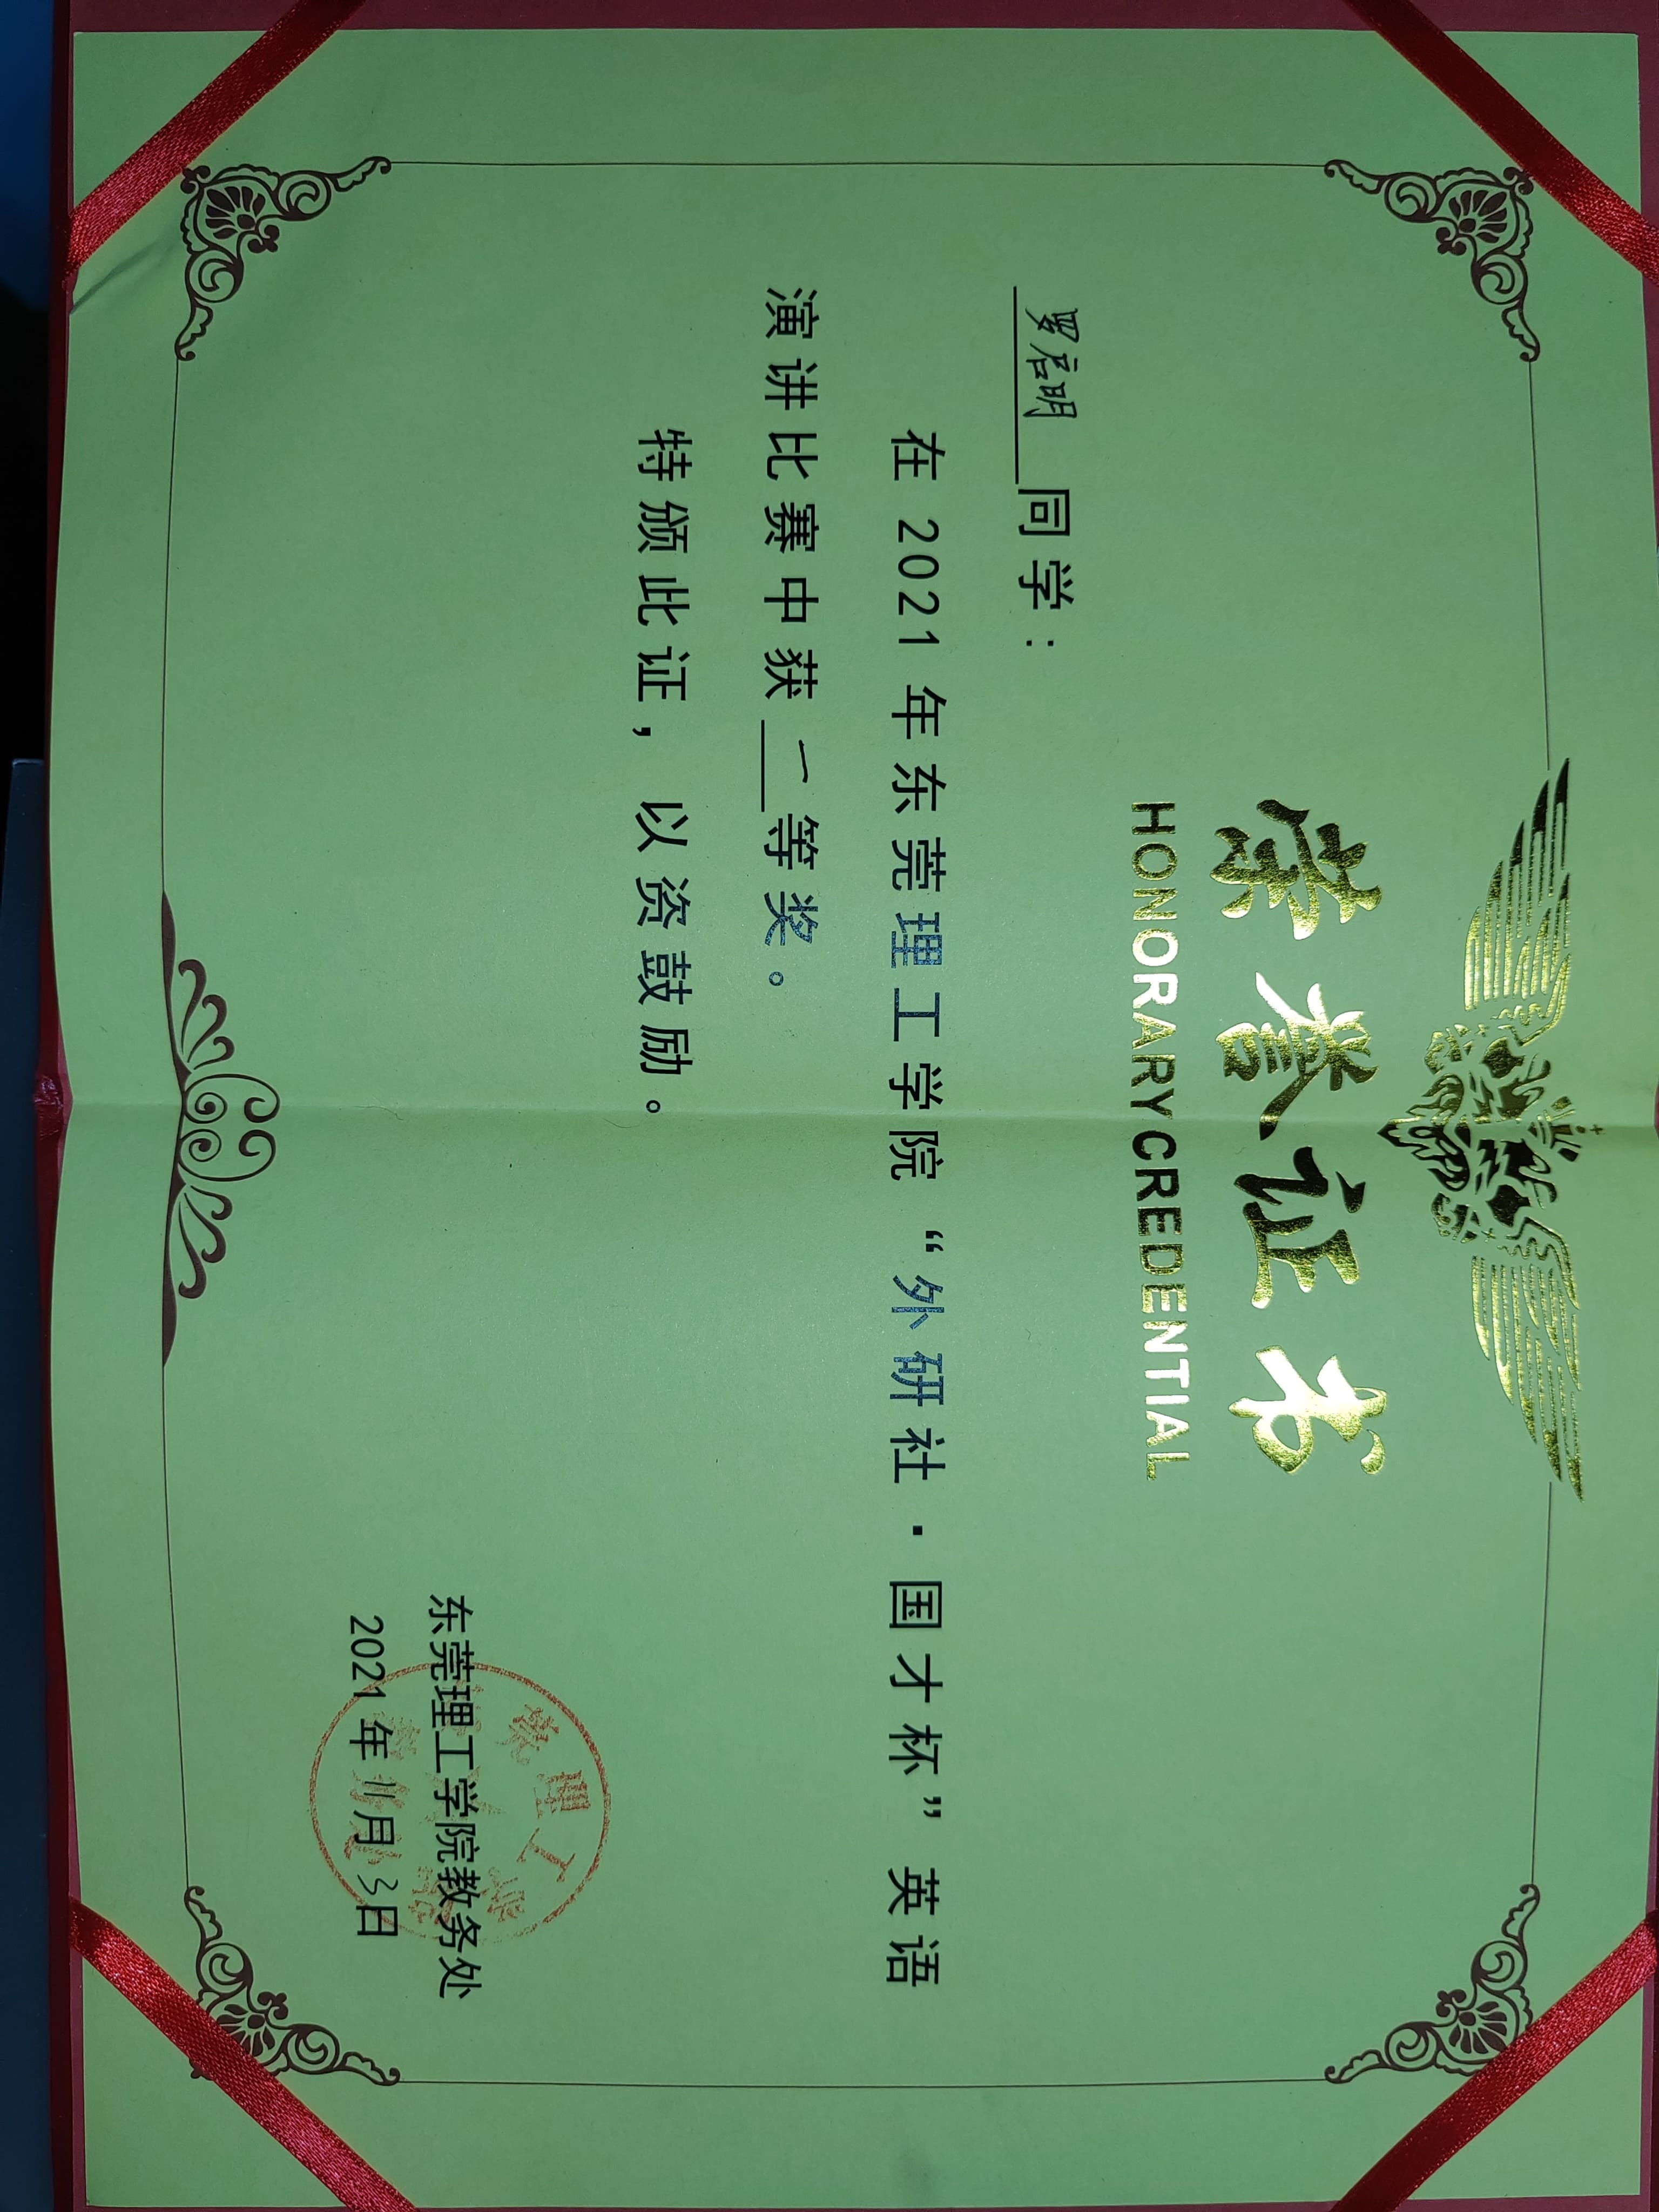 荣誉证书
HONORARY CREDENTIAL
罗启明同学:
在2021年东莞理工学院“外研社·国才杯”英语
演讲比赛中获一等奖。
特颁此证，以资鼓励。
莞理工学院
东莞理工学院教务处
2021年11月3日